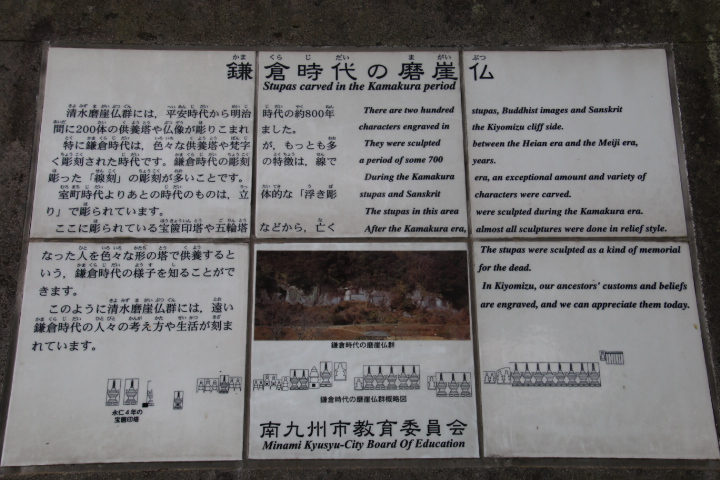 かまくらじだい まがいぶつ
鎌倉時代の磨崖仏
Stupas carved in the Kamakura period
清水磨崖仏群には，平安時代から明治時代の約800年
間に200体の供養塔や仏像が彫りこまれました。
特に鎌倉時代は，色々な供養塔や梵字が，もっとも多
く彫刻された時代です。鎌倉時代の彫刻の特徴は，線で
彫った「線刻」の彫刻が多いことです。
室町時代よりあとの時代のものは，立体的な「浮き彫
り」で彫られています。
ここに彫られている宝篋印塔や五輪塔などから，亡く
なった人を色々な形の塔で供養すると
いう，鎌倉時代の様子を知ることがで
きます。
このように清水磨崖仏群には，遠い
鎌倉時代の人々の考え方や生活が刻ま
れています。
There are two hundred stupas, Buddhist images and Sanskrit
characters engraved in the Kiyomizu cliff side.
They were sculpted between the Heian era and the Meiji era,
a period of some 700 years.
During the Kamakura era, an exceptional amount and variety of
stupas and Sanskrit characters were carved.
The stupas in this area were sculpted during the Kamakura era.
After the Kamakura era, almost all sculptures were done in relief style.
The stupas were sculpted as a kind of memorial
for the dead.
In Kiyomizu, our ancestors' customs and beliefs
are engraved, and we can appreciate them today.
鎌倉時代の磨崖仏群
永仁４年の
宝篋印塔
鎌倉時代の磨崖仏群概略図
南九州市教育委員会
Minami Kyusyu-City Board Of Education